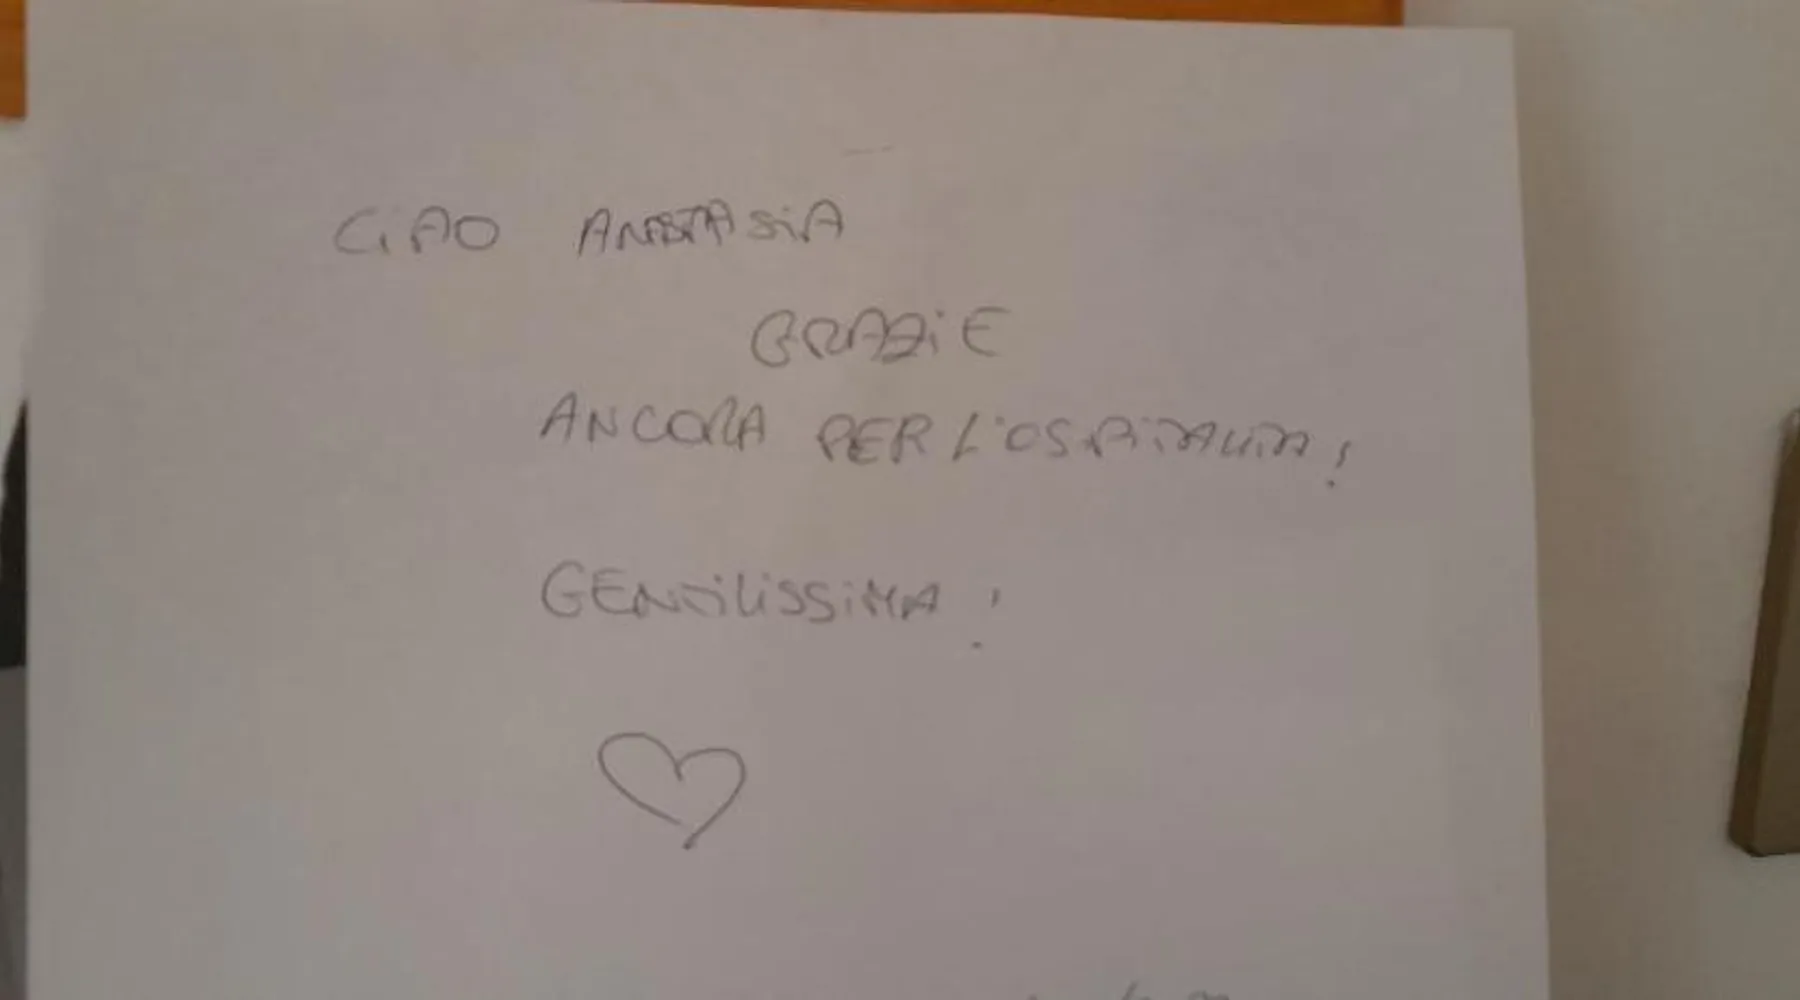 CiAO ANASTASiA
GRAZiE
ANCORA PER L'OSPiTALITA!
GENTiLiSSiMA!